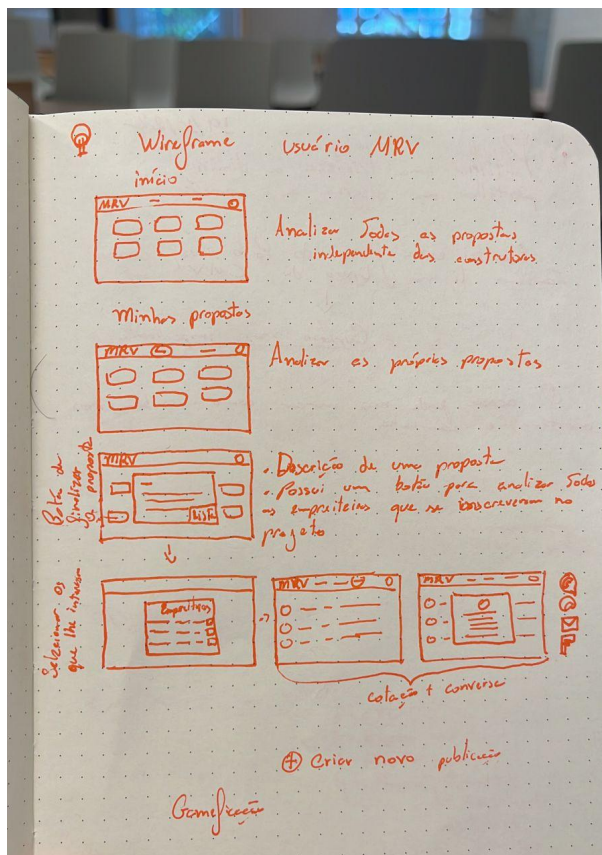 Wireframe usuário MRV
início
MRV
Analizar Todas as propostas
independente das construtoras
Minhas propostas
MRV
Analizar as próprias propostas
Botão de
finalizar
proposta
MRV
List
• Descrição de uma proposta
• Possui um botão para analizar Todos
os empreiteiros que se inscreveram no
projeto
Selecionar os
que lhe interessa
Empreiteiros
MRV
MRV
cotação + conversa
+ Criar novo publicação
Gameficação